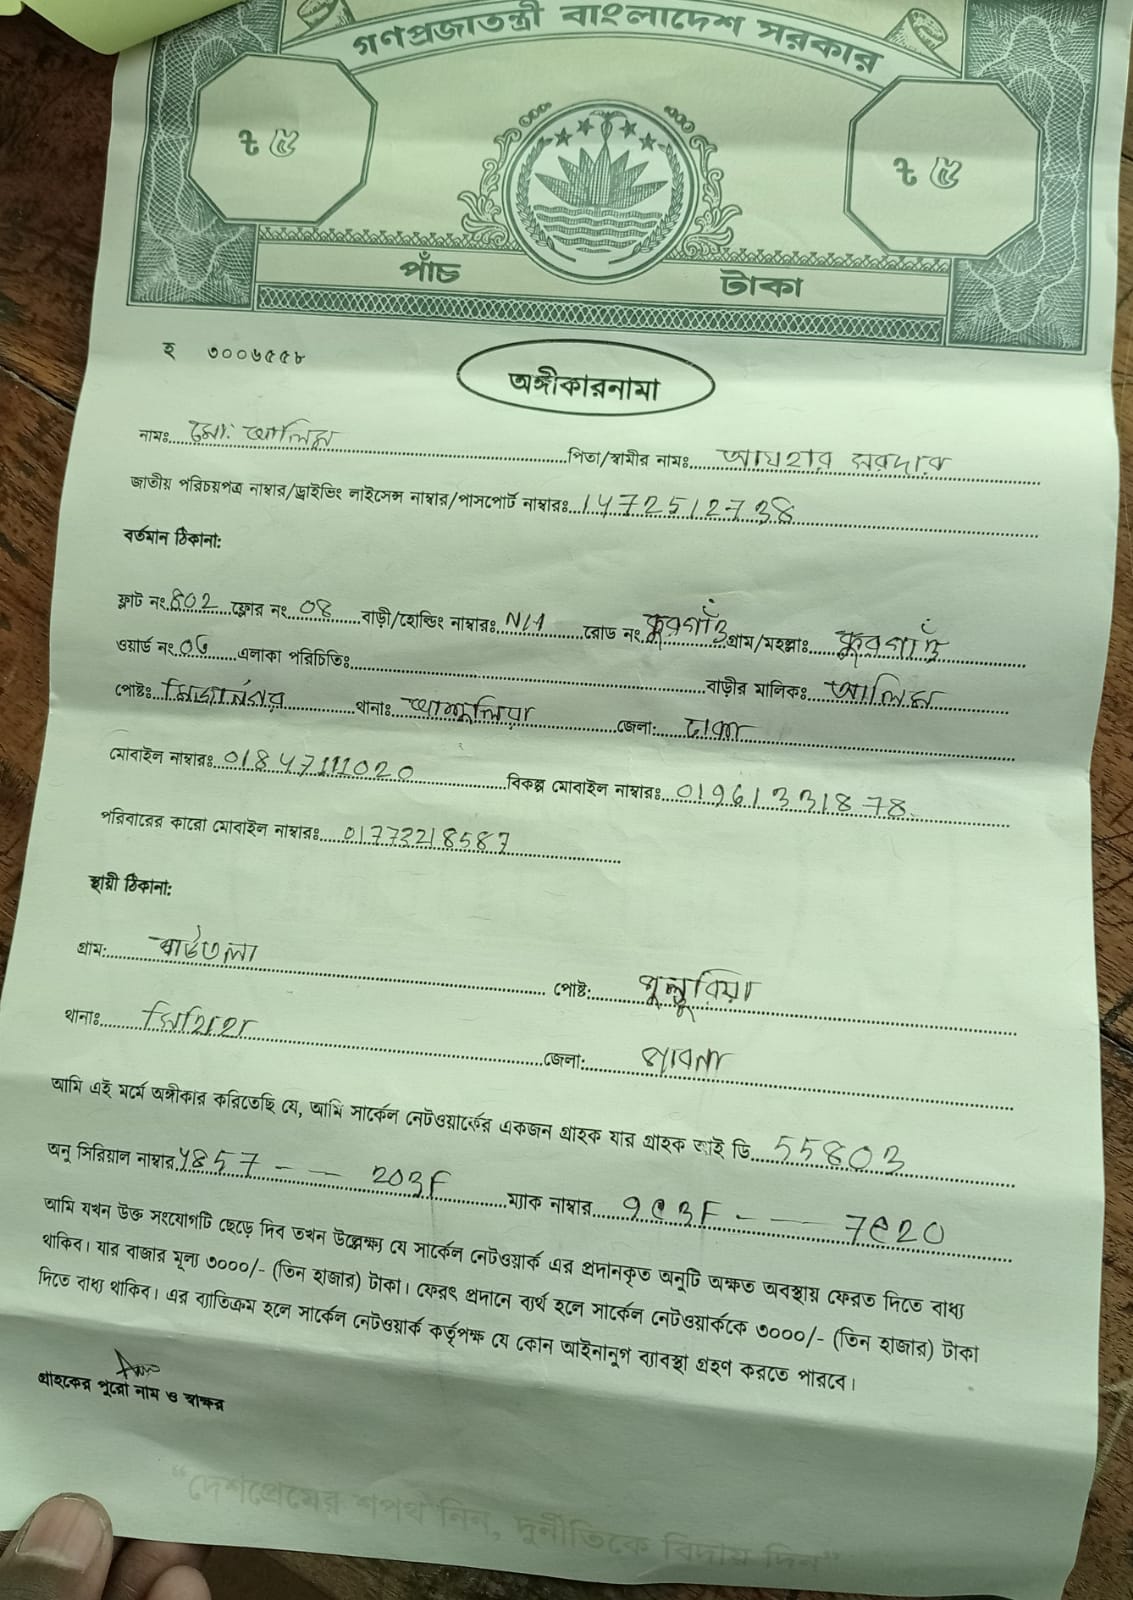 গণপ্রজাতন্ত্রী বাংলাদেশ সরকার
৳ ৫
৳ ৫
পাঁচ টাকা
হ ৩০০৬৫৫৮
অঙ্গীকারনামা
নামঃ মো: আলিম পিতা/স্বামীর নামঃ আযহার সরদার
জাতীয় পরিচয়পত্র নাম্বার/ড্রাইভিং লাইসেন্স নাম্বার/পাসপোর্ট নাম্বারঃ 1472512738
বর্তমান ঠিকানা:
ফ্লাট নং 802 ফ্লোর নং 08 বাড়ী/হোল্ডিং নাম্বারঃ N/A রোড নং কুরগাঁও গ্রাম/মহল্লাঃ কুরগাঁও
ওয়ার্ড নং 06 এলাকা পরিচিতিঃ বাড়ীর মালিকঃ আলিম
পোষ্টঃ মির্জানগর থানাঃ আশুলিয়া জেলা: ঢাকা
মোবাইল নাম্বারঃ 01847111020 বিকল্প মোবাইল নাম্বারঃ 01961331878
পরিবারের কারো মোবাইল নাম্বারঃ 01773218587
স্থায়ী ঠিকানা:
গ্রাম: পোষ্ট:
থানাঃ জেলা: পাবনা
আমি এই মর্মে অঙ্গীকার করিতেছি যে, আমি সার্কেল নেটওয়ার্কের একজন গ্রাহক যার গ্রাহক আই ডি 55803
অনু সিরিয়াল নাম্বার 4857 - - 203F ম্যাক নাম্বার 9C3F - - 7E20
আমি যখন উক্ত সংযোগটি ছেড়ে দিব তখন উল্লেক্ষ্য যে সার্কেল নেটওয়ার্ক এর প্রদানকৃত অনুটি অক্ষত অবস্থায় ফেরত দিতে বাধ্য
থাকিব। যার বাজার মূল্য ৩০০০/- (তিন হাজার) টাকা। ফেরৎ প্রদানে ব্যর্থ হলে সার্কেল নেটওয়ার্ককে ৩০০০/- (তিন হাজার) টাকা
দিতে বাধ্য থাকিব। এর ব্যাতিক্রম হলে সার্কেল নেটওয়ার্ক কর্তৃপক্ষ যে কোন আইনানুগ ব্যাবস্থা গ্রহণ করতে পারবে।
গ্রাহকের পুরো নাম ও স্বাক্ষর
“দেশপ্রেমের শপথ নিন, দুর্নীতিকে বিদায় দিন”